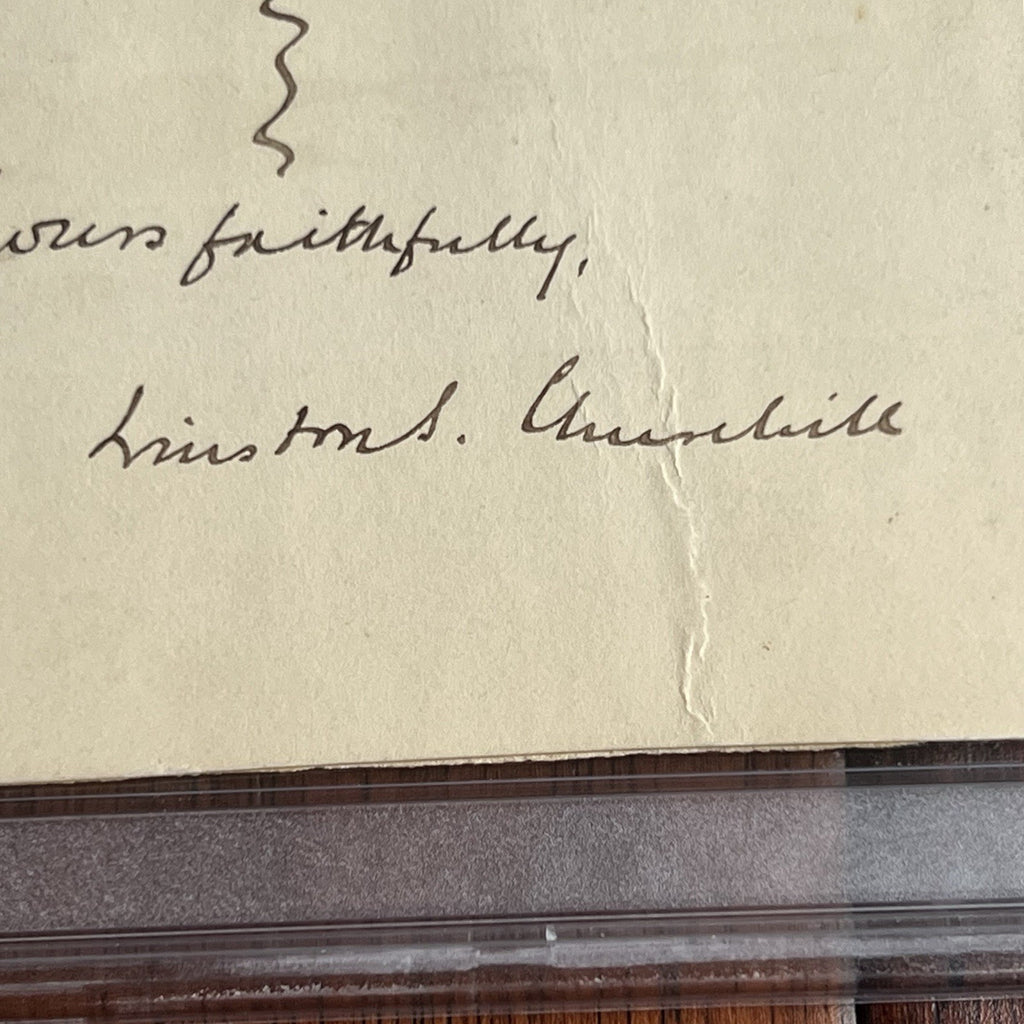 Yours faithfully,
Winston S. Churchill